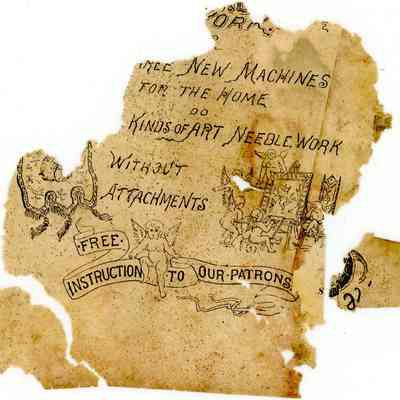 NEW MACHINES
FOR THE HOME
DO
KINDS OF ART NEEDLE WORK
WITHOUT
ATTACHMENTS
FREE
INSTRUCTION TO OUR PATRONS